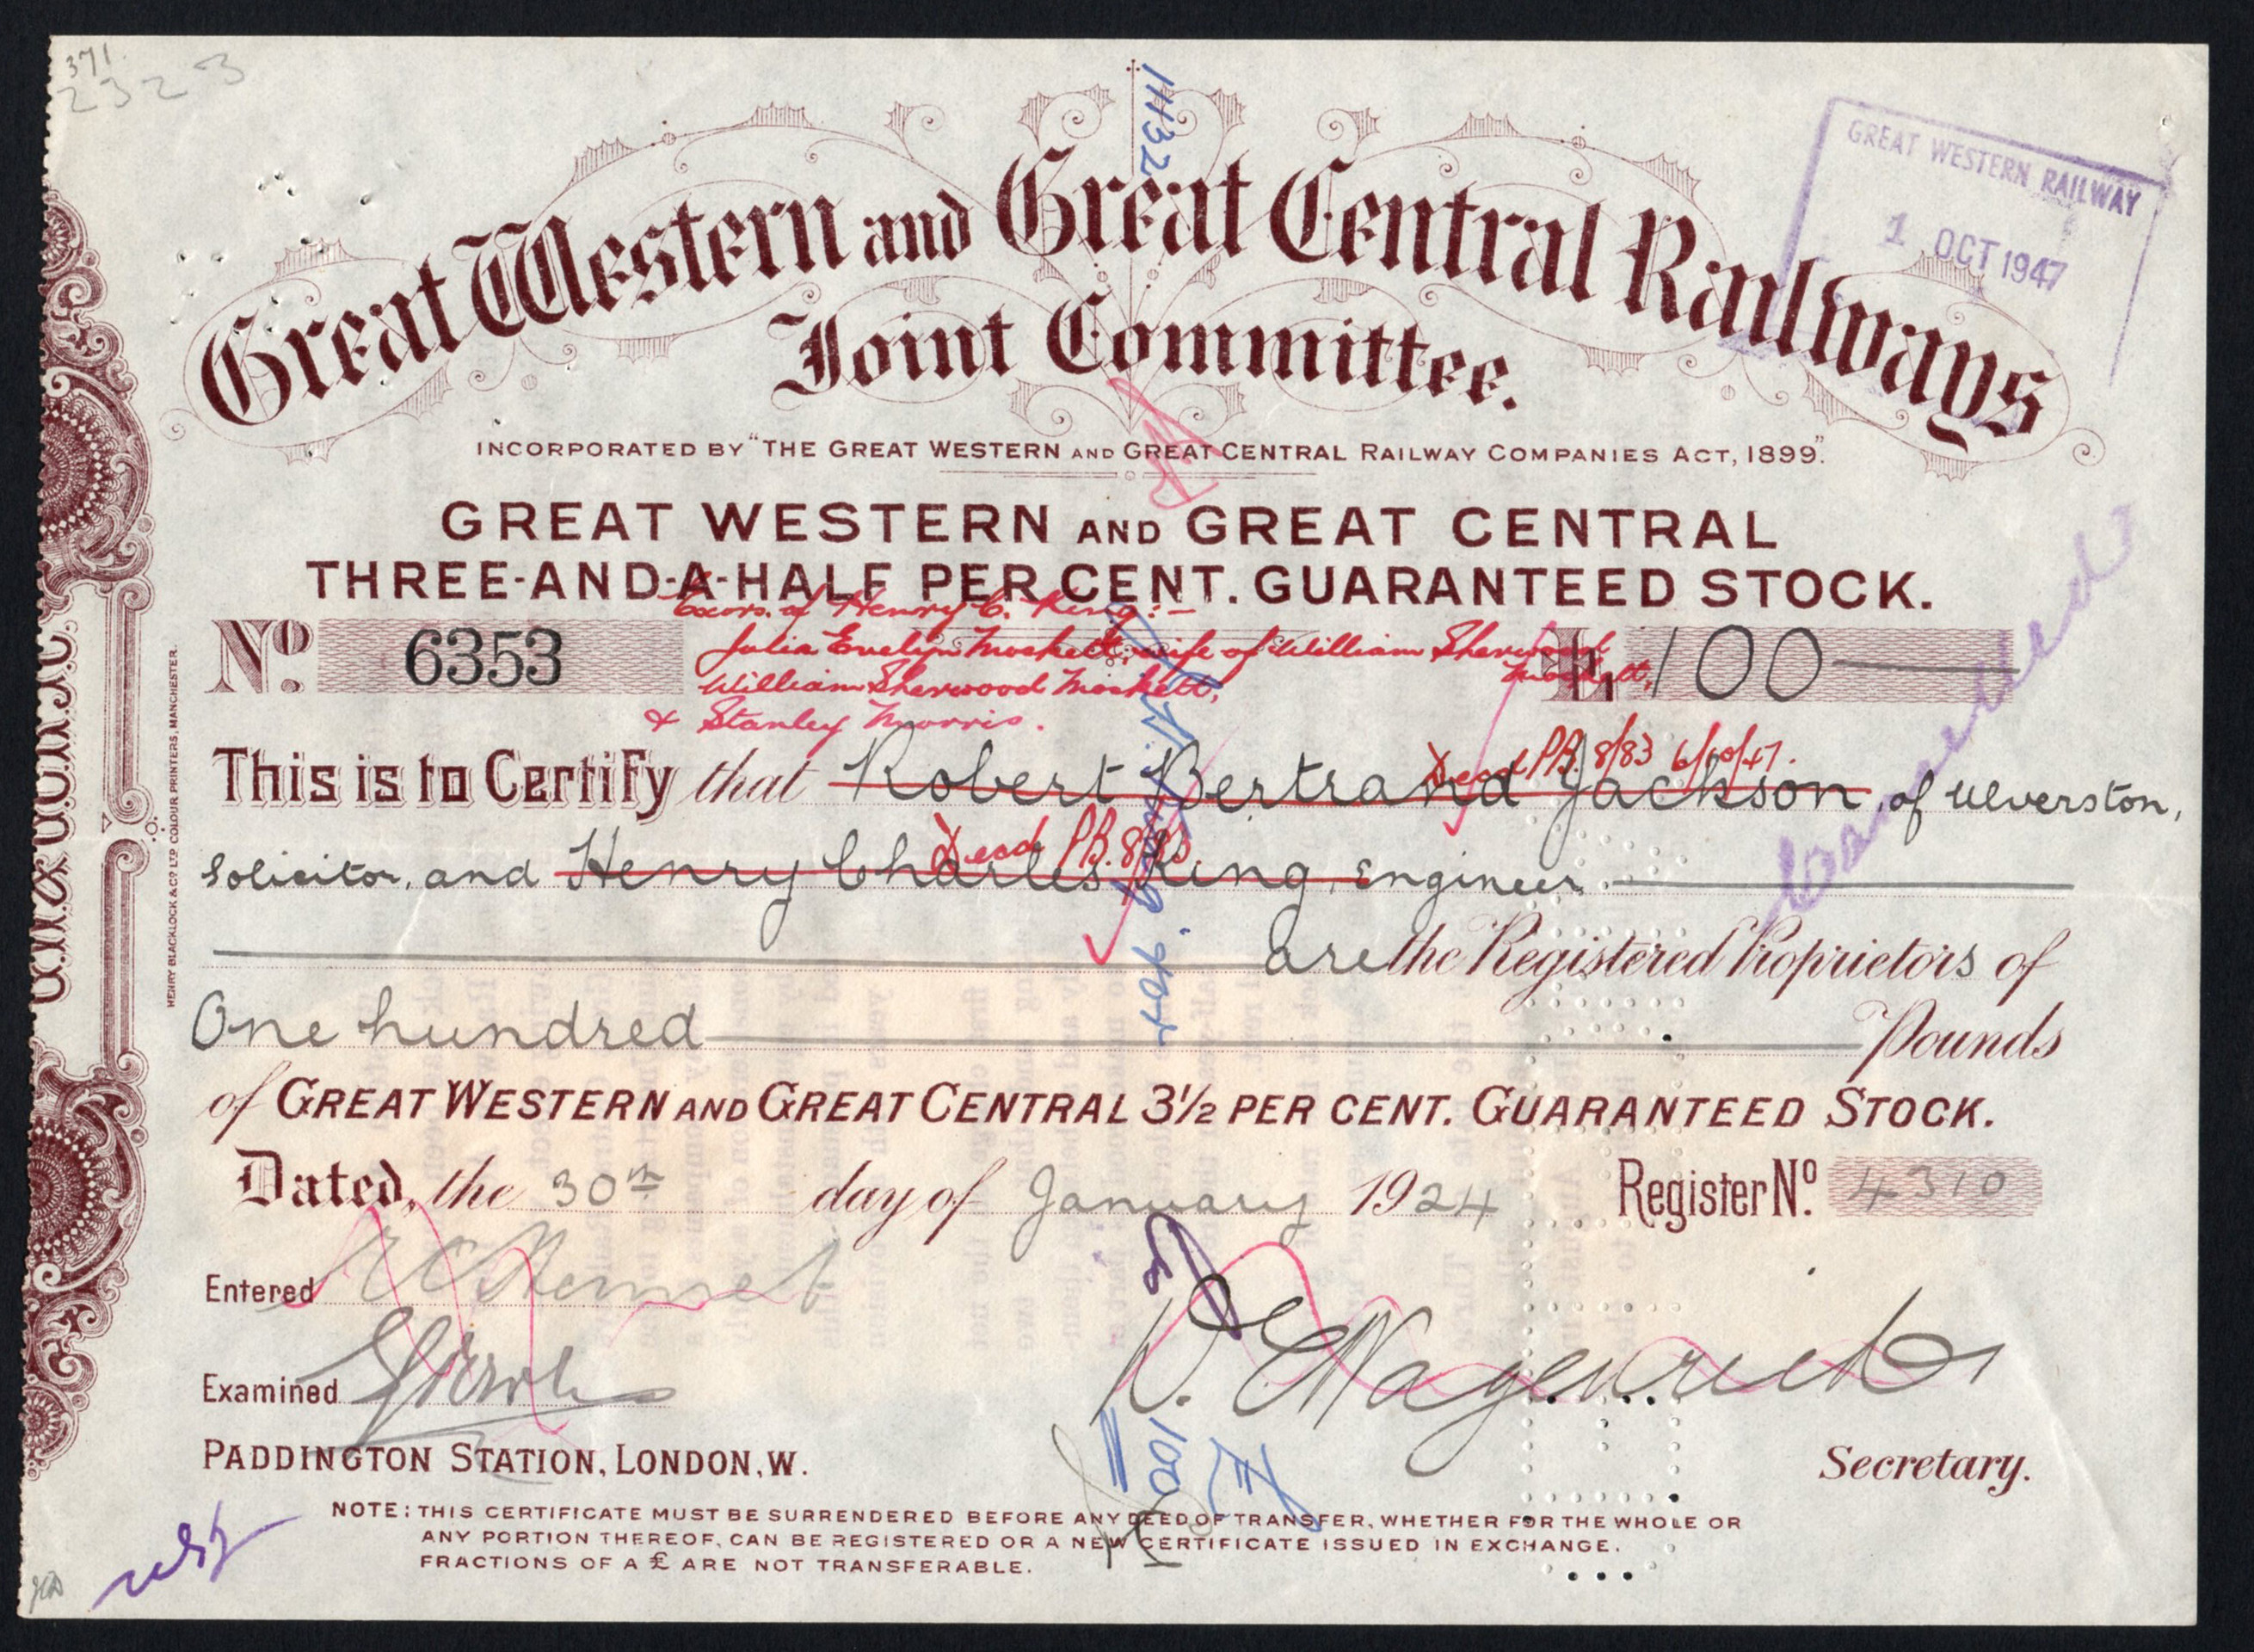 371
2323
GREAT WESTERN RAILWAY
1 OCT 1947
11432
Great Western and Great Central Railways
Joint Committee.
INCORPORATED BY "THE GREAT WESTERN AND GREAT CENTRAL RAILWAY COMPANIES ACT, 1899".
GREAT WESTERN AND GREAT CENTRAL
THREE-AND-A-HALF PER CENT. GUARANTEED STOCK.
Exors. of Henry C. King:-
Julia Evelyn Moskett, wife of William Sherwood Moskett,
William Sherwood Moskett,
& Stanley Morris.
No. 6353
£ 100
Cancelled
Dead P.B. 8/83 6/10/47.
This is to Certify that Robert Bertrand Jackson, of Ulverston,
Dead P.B. 8/83
Solicitor, and Henry Charles King, Engineer
are the Registered Proprietors of
One hundred Pounds
of GREAT WESTERN AND GREAT CENTRAL 3½ PER CENT. GUARANTEED STOCK.
Dated, the 30th day of January 1924
Register No. 4310
Entered
Examined
PADDINGTON STATION, LONDON, W.
Secretary.
£100
NOTE: THIS CERTIFICATE MUST BE SURRENDERED BEFORE ANY DEED OF TRANSFER, WHETHER FOR THE WHOLE OR
ANY PORTION THEREOF, CAN BE REGISTERED OR A NEW CERTIFICATE ISSUED IN EXCHANGE.
FRACTIONS OF A £ ARE NOT TRANSFERABLE.
HENRY BLACKLOCK & CO. LTD COLOUR PRINTERS, MANCHESTER.